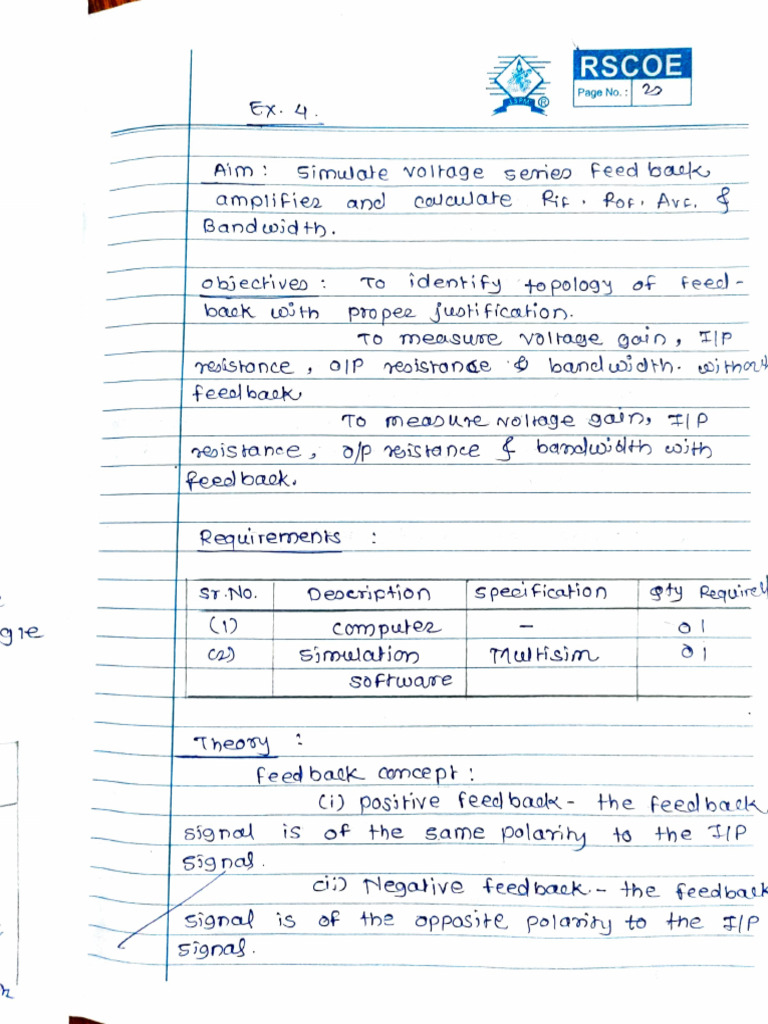 RSCOE
Page No. : 20
JSPM
®
Ex. 4.
Aim : Simulate voltage series feed back
amplifier and calculate Rif. Rof. Avf. &
Bandwidth.
objectives : To identify topology of feed-
back with proper justification.
To measure voltage gain, I/P
resistance, O/P resistance & bandwidth. without
feedback
To measure voltage gain, I/P
resistance, o/p resistance & bandwidth with
feedback.
Requirements :
Sr.No. Description Specification Qty Required
(1) computer - 01
(2) simulation Multisim 01
software
Theory :
feedback concept :
(i) positive feedback - the feedback
signal is of the same polarity to the I/P
signal.
(ii) Negative feedback - the feedback
signal is of the opposite polarity to the I/P
signal.